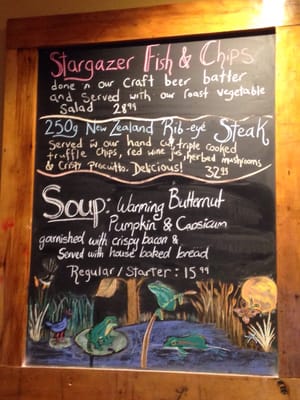 Stargazer Fish & Chips
done in our craft beer batter
and served with our roast vegetable
Salad 28.99
250g New Zealand Rib-eye Steak
Served w our hand cut, triple cooked
truffle chips, red wine jus, herbed mushrooms
& Crispy Prociutto. Delicious! 32.95
Soup: Warming Butternut
Pumpkin & Capsicum
garnished with crispy bacon &
Served with house baked bread
Regular/Starter: 15.99